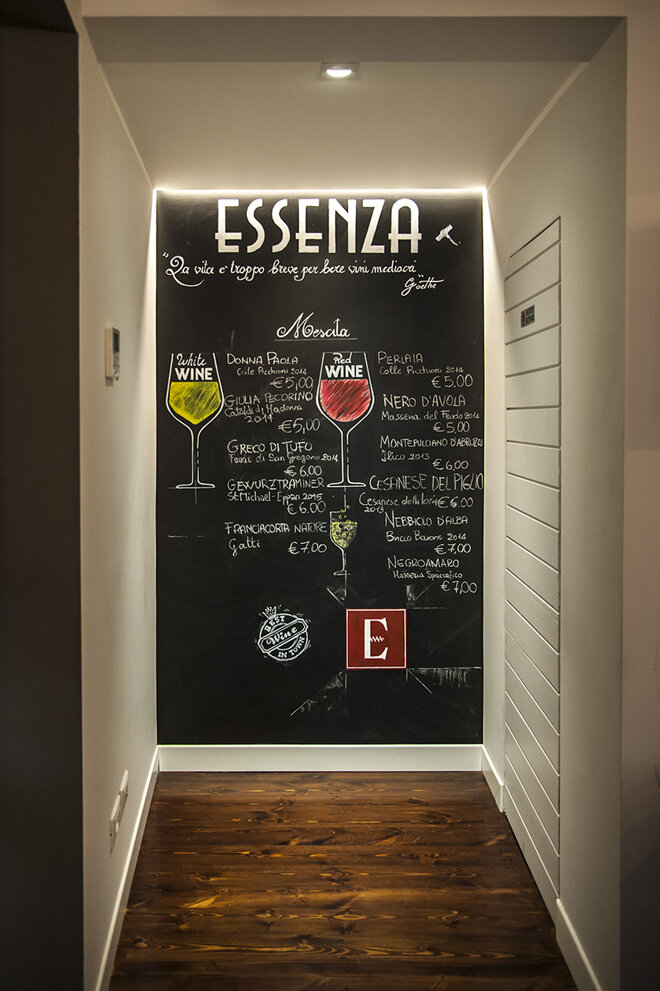 ESSENZA
"La vita e troppo breve per bere vini mediocri"
Goethe
Mescita
White
WINE
DONNA PAOLA
Colle Picchioni 2014
€5,00
GIULIA PECORINO
Cataldi di Madonna
2014
€5,00
GRECO DI TUFO
Feudi di San Gregorio 2014
€6.00
GEWURZTRAMINER
St Michael-Eppan 2015
€6.00
FRANCIACORTA NATURE
Gatti
€7,00
Red
WINE
PERLAIA
Colle Picchioni 2014
€5,00
NERO D'AVOLA
Masseria del Feudo 2014
€5,00
MONTEPULCIANO D'ABRUZZO
2013
€6,00
CESANESE DEL PIGLIO
Cesanese della
2013
€6.00
NEBBIOLO D'ALBA
Bricco 2014
€7,00
NEGROAMARO
Masseria
€7,00
BEST
Wine
IN TOWN
E